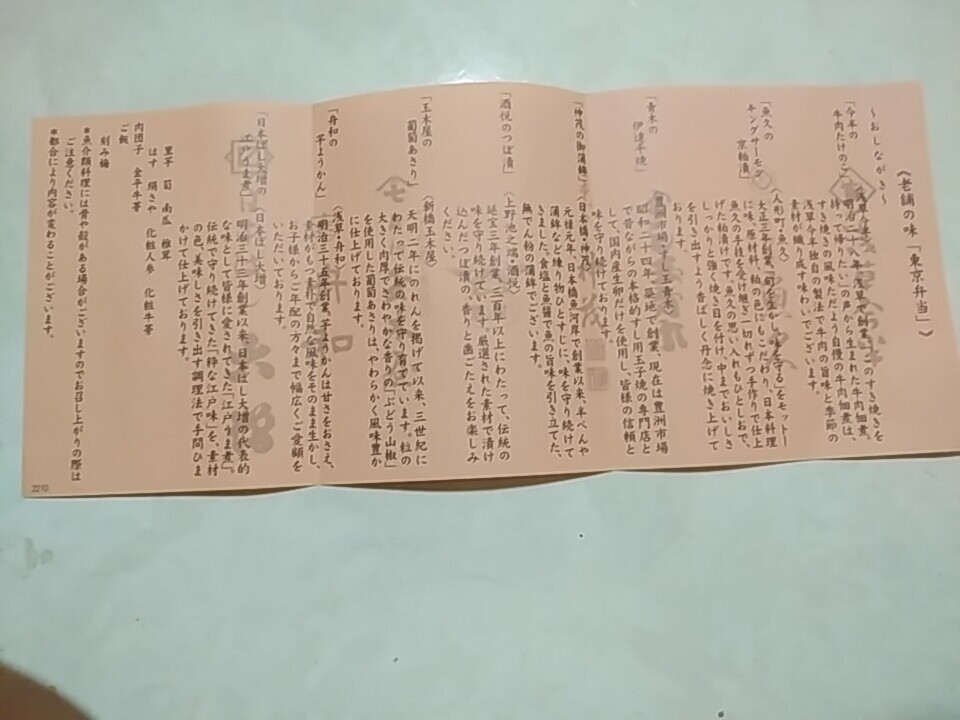 《老舗の味「東京弁当」》
〜おしながき〜
「今半の
牛肉たけのこ」
(浅草・今半)
明治二十八年、浅草で創業。「このすき焼きを
持って帰りたい。」の声から生まれた牛肉佃煮。
すき焼きの風味ただよう自慢の牛肉佃煮は、
浅草今半独自の製法で牛肉の旨味と季節の
素材が織り成す味わいでございます。
「魚久の
キングサーモン
京粕漬」
(人形町・魚久)
大正三年創業。「旬を生かし、味を守る」をモットー
に味・原材料・粕・魚の色にもこだわり、日本料理
魚久の手技を受け継ぎ一切れずつ手作りで仕上
げた粕漬けです。魚久の思い入れもひとしおで、
しっかりと強く焼き目を付け、中までおいしさ
を引き出すよう香ばしく丹念に焼き上げて
おります。
「青木の
伊達玉子焼」
(豊洲市場・すし玉青木)
昭和二十四年、築地で創業、現在は豊洲市場
で昔ながらの本格的すし用玉子焼の専門店と
して、国内産生卵だけを使用し、皆様の信頼と
味を守り続けております。
「神茂の御蒲鉾」
(日本橋・神茂)
元禄元年、日本橋魚河岸で創業以来、半ぺんや
蒲鉾など練り物ひとすじに、味を守り続けて
きました。食塩と魚醤で魚の旨味を引き立てた、
無でん粉の蒲鉾でございます。
「酒悦のつぼ漬」
(上野池之端・酒悦)
延宝三年創業、三百年以上にわたって、伝統の
味を守り続けています。厳選された素材で漬け
込んだつぼ漬の、香りと歯ごたえをお楽しみ
ください。
「玉木屋の
葡萄あさり」
(新橋玉木屋)
天明二年にのれんを掲げて以来、三世紀に
わたって伝統の味を守り育てています。粒の
大きく肉厚でさわやかな香りの「ぶどう山椒」
を使用した葡萄あさりは、やわらかく風味豊か
に仕上げております。
「舟和の
芋ようかん」
(浅草・舟和)
明治三十五年創業。芋ようかんは甘さをおさえ、
素材がもつ素朴で自然な風味をそのまま生かし、
お子様からご年配の方々まで幅広くご愛顧を
いただいております。
「日本ばし大増の
江戸うま煮」
(日本ばし大増)
明治三十三年創業以来、日本ばし大増の代表的
な味として皆様に愛されてきた「江戸うま煮」。
伝統で守り続けてきた「粋な江戸味」を、素材
の色、美味しさを引き出す調理法で手間ひま
かけて仕上げております。
里芋 筍 南瓜 椎茸
はす 絹さや 化粧人参 化粧牛蒡
肉団子 金平牛蒡
ご飯
刻み梅
*魚介類料理には骨や殻がある場合がございますのでお召し上がりの際は
ご注意ください。
*都合により内容が変わることがございます。
2210